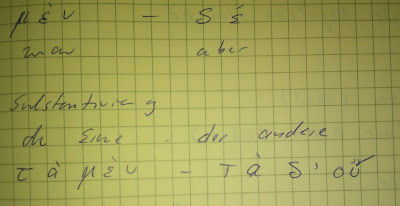 μὲν – δέ
zwar aber
Substantivierg
der eine - der andere
τὰ μὲν – τὰ δ' οὔ